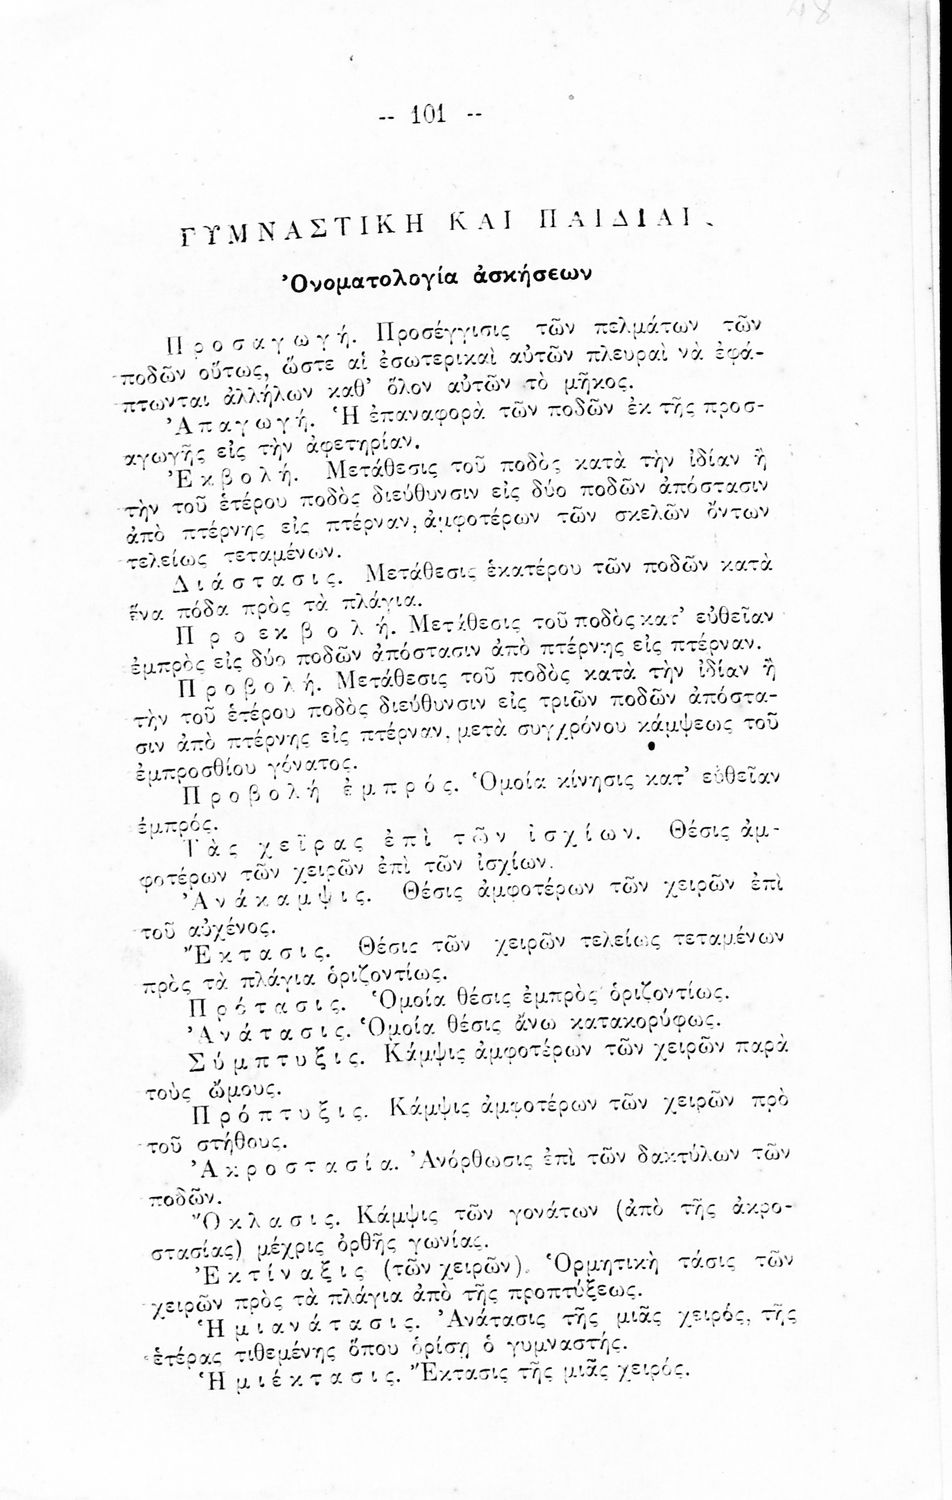 48
-- 101 --
ΓΥΜΝΑΣΤΙΚΗ ΚΑΙ ΠΑΙΔΙΑΙ.
Ὀνοματολογία ἀσκήσεων
Προσαγωγή. Προσέγγισις τῶν πελμάτων τῶν
ποδῶν οὕτως, ὥστε αἱ ἐσωτερικαὶ αὐτῶν πλευραὶ νὰ ἐφά-
πτωνται ἀλλήλων καθ’ ὅλον αὐτῶν τὸ μῆκος.
Ἀπαγωγή. Ἡ ἐπαναφορὰ τῶν ποδῶν ἐκ τῆς προσ-
αγωγῆς εἰς τὴν ἀφετηρίαν.
Ἐκβολή. Μετάθεσις τοῦ ποδὸς κατὰ τὴν ἰδίαν ἢ
τὴν τοῦ ἑτέρου ποδὸς διεύθυνσιν εἰς δύο ποδῶν ἀπόστασιν
ἀπὸ πτέρνης εἰς πτέρναν, ἀμφοτέρων τῶν σκελῶν ὄντων
τελείως τεταμένων.
Διάστασις. Μετάθεσις ἑκατέρου τῶν ποδῶν κατὰ
ἕνα πόδα πρὸς τὰ πλάγια.
Προεκβολή. Μετάθεσις τοῦ ποδὸς κατ’ εὐθεῖαν
ἐμπρὸς εἰς δύο ποδῶν ἀπόστασιν ἀπὸ πτέρνης εἰς πτέρναν.
Προβολή. Μετάθεσις τοῦ ποδὸς κατὰ τὴν ἰδίαν ἢ
τὴν τοῦ ἑτέρου ποδὸς διεύθυνσιν εἰς τριῶν ποδῶν ἀπόστα-
σιν ἀπὸ πτέρνης εἰς πτέρναν, μετὰ συγχρόνου κάμψεως τοῦ
ἐμπροσθίου γόνατος.
Προβολή ἐμπρός. Ὁμοία κίνησις κατ’ εὐθεῖαν
ἐμπρός.
Τὰς χεῖρας ἐπὶ τῶν ἰσχίων. Θέσις ἀμ-
φοτέρων τῶν χειρῶν ἐπὶ τῶν ἰσχίων.
Ἀνάκαμψις. Θέσις ἀμφοτέρων τῶν χειρῶν ἐπὶ
τοῦ αὐχένος.
Ἔκτασις. Θέσις τῶν χειρῶν τελείως τεταμένων
πρὸς τὰ πλάγια ὁριζοντίως.
Πρότασις. Ὁμοία θέσις ἐμπρὸς ὁριζοντίως.
Ἀνάτασις. Ὁμοία θέσις ἄνω κατακορύφως.
Σύμπτυξις. Κάμψις ἀμφοτέρων τῶν χειρῶν παρὰ
τοὺς ὤμους.
Πρόπτυξις. Κάμψις ἀμφοτέρων τῶν χειρῶν πρὸ
τοῦ στήθους.
Ἀκροστασία. Ἀνόρθωσις ἐπὶ τῶν δακτύλων τῶν
ποδῶν.
Ὄκλασις. Κάμψις τῶν γονάτων (ἀπὸ τῆς ἀκρο-
στασίας) μέχρις ὀρθῆς γωνίας.
Ἐκτίναξις (τῶν χειρῶν). Ὁρμητικὴ τάσις τῶν
χειρῶν πρὸς τὰ πλάγια ἀπὸ τῆς προπτύξεως.
Ἡμιανάτασις. Ἀνάτασις τῆς μιᾶς χειρός, τῆς
ἑτέρας τιθεμένης ὅπου ὁρίσῃ ὁ γυμναστής.
Ἡμιέκτασις. Ἔκτασις τῆς μιᾶς χειρός.